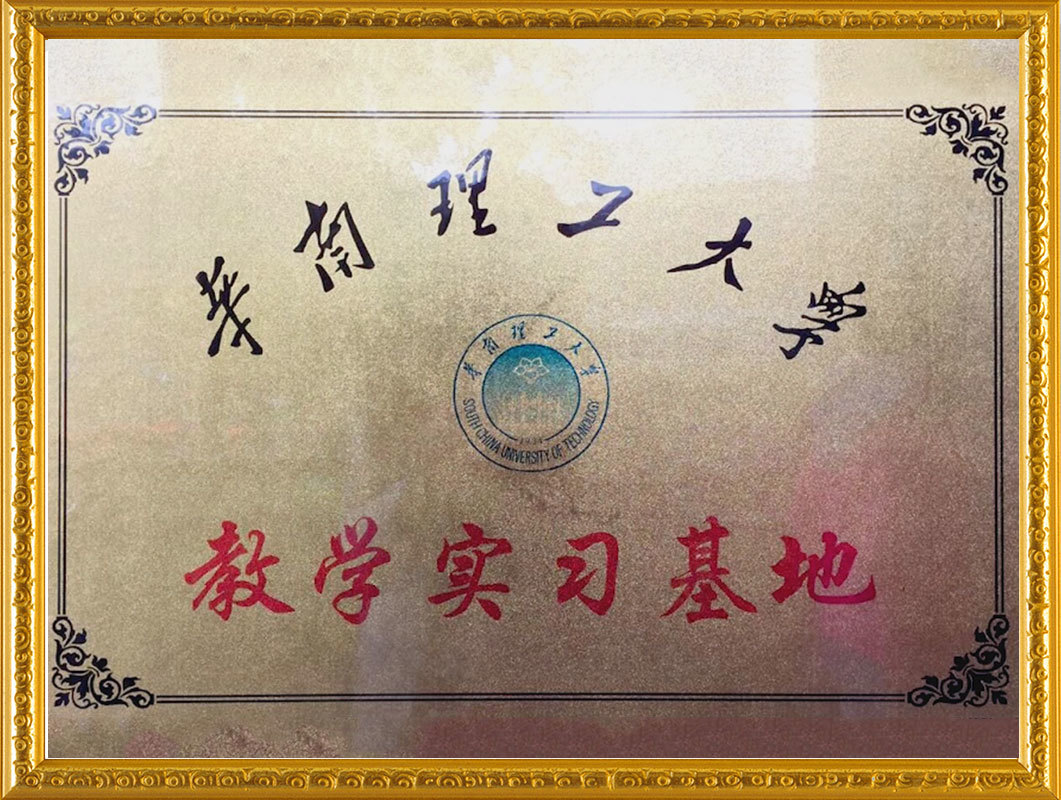 华南理工大学
华南理工大学
1934
SOUTH CHINA UNIVERSITY OF TECHNOLOGY
教学实习基地